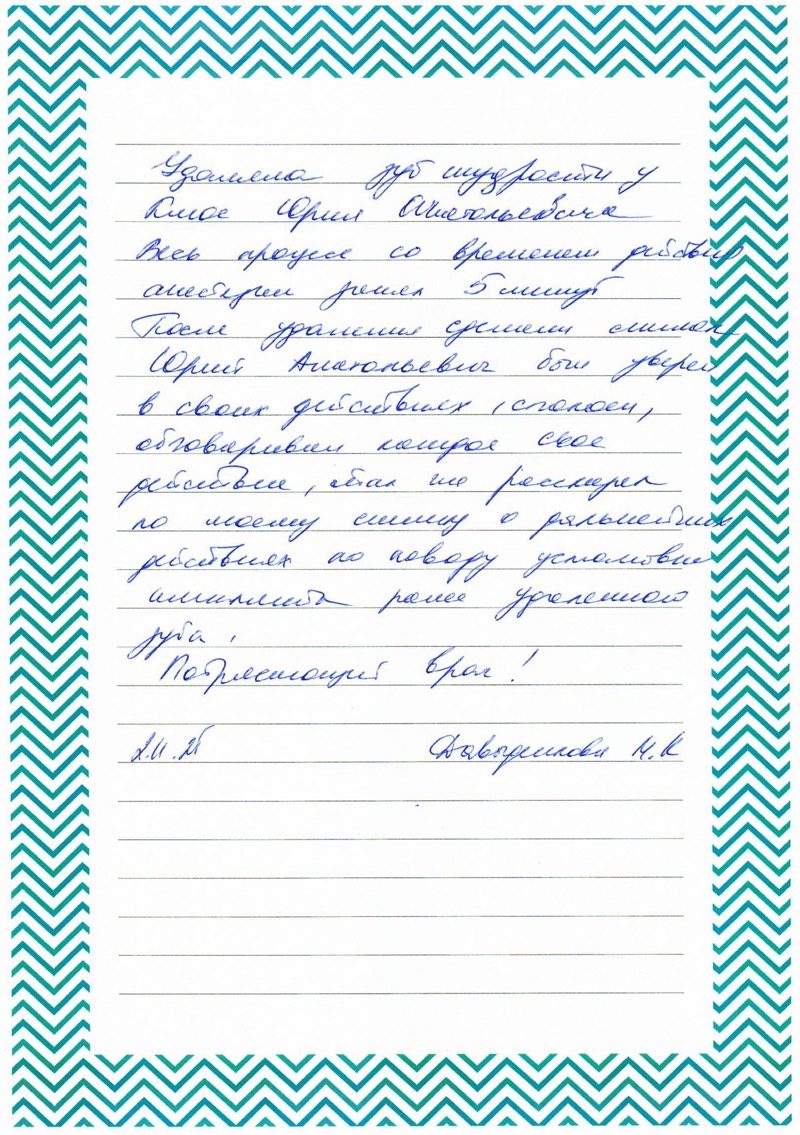 Удаляла зуб мудрости у
Клюс Юрия Анатольевича
Весь процесс со временем действия
анестезии занял 5 минут
После удаления сделали снимок
Юрий Анатольевич был уверен
в своих действиях, спокоен,
обговаривал каждое свое
действие, так же рассказал
по моему снимку о дальнейших
действиях по поводу установки
импланта ранее удаленного
зуба.
Потрясающий врач!
М.К